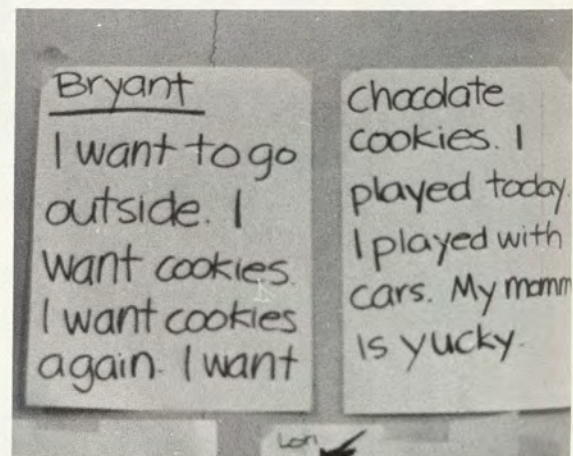 Bryant
I want to go
outside. I
want cookies.
I want cookies
again. I want
chocolate
cookies. I
played today.
I played with
cars. My momm
is yucky.
Lori